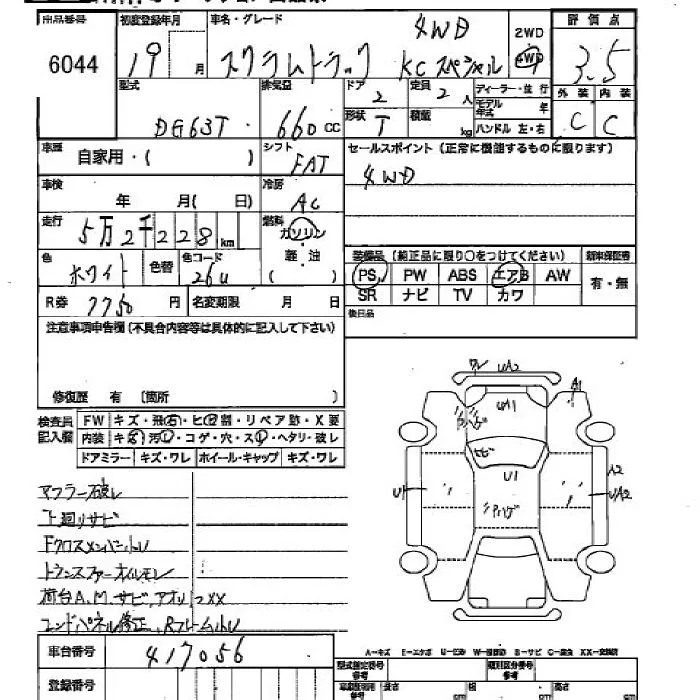 出品番号 初度登録年月 車名・グレード 4WD 2WD 4WD 評価点
6044 19 月 スクラムトラック KCスペシャル 3.5
型式 排気量 ドア 2 定員 2 人 ディーラー・並行 外装 内装
DG63T 660 CC 形状 T 積載 kg モデル年式 年 C C
ハンドル 左・右
車歴 自家用・( ) シフト FAT セールスポイント (正常に機能するものに限ります)
車検 年 月( 日) 冷房 AC 4WD
走行 5万2千228 km 燃料 ガソリン 軽・油 ( )
装備品 (純正品に限り○をつけてください) 新車保証書
色 ホワイト 色替 色コード 26U
PS PW ABS エアB AW 有・無
SR ナビ TV カワ
R券 7750 円 名変期限 月 日
後日品
注意事項申告欄 (不具合内容等は具体的に記入して下さい)
修復歴 有 〔箇所 〕
検査員記入欄 FW キズ・飛石・ヒビ割・リペア跡・X要
内装 キズ・汚レ・コゲ・穴・スレ・ヘタリ・破レ
ドアミラー キズ・ワレ ホイール・キャップ キズ・ワレ
ワレ UA2
A1
UA1
ハゲ
サビ
U1
U1
A2
UA2
ハゲ
マフラー破レ
下廻リサビ
Fクロスメンバートレ
トランスファーオイルモレ
荷台A.M.サビ、アオリ2XX
エンドパネル修正、Rフレームトレ
A-キズ E-エクボ U-凹ミ W-補修跡 B-サビ C-腐食 XX-交換済
車台番号 417056
型式指定番号 参考 類別区分番号 参考
登録番号
長さ cm 幅 cm 高さ cm